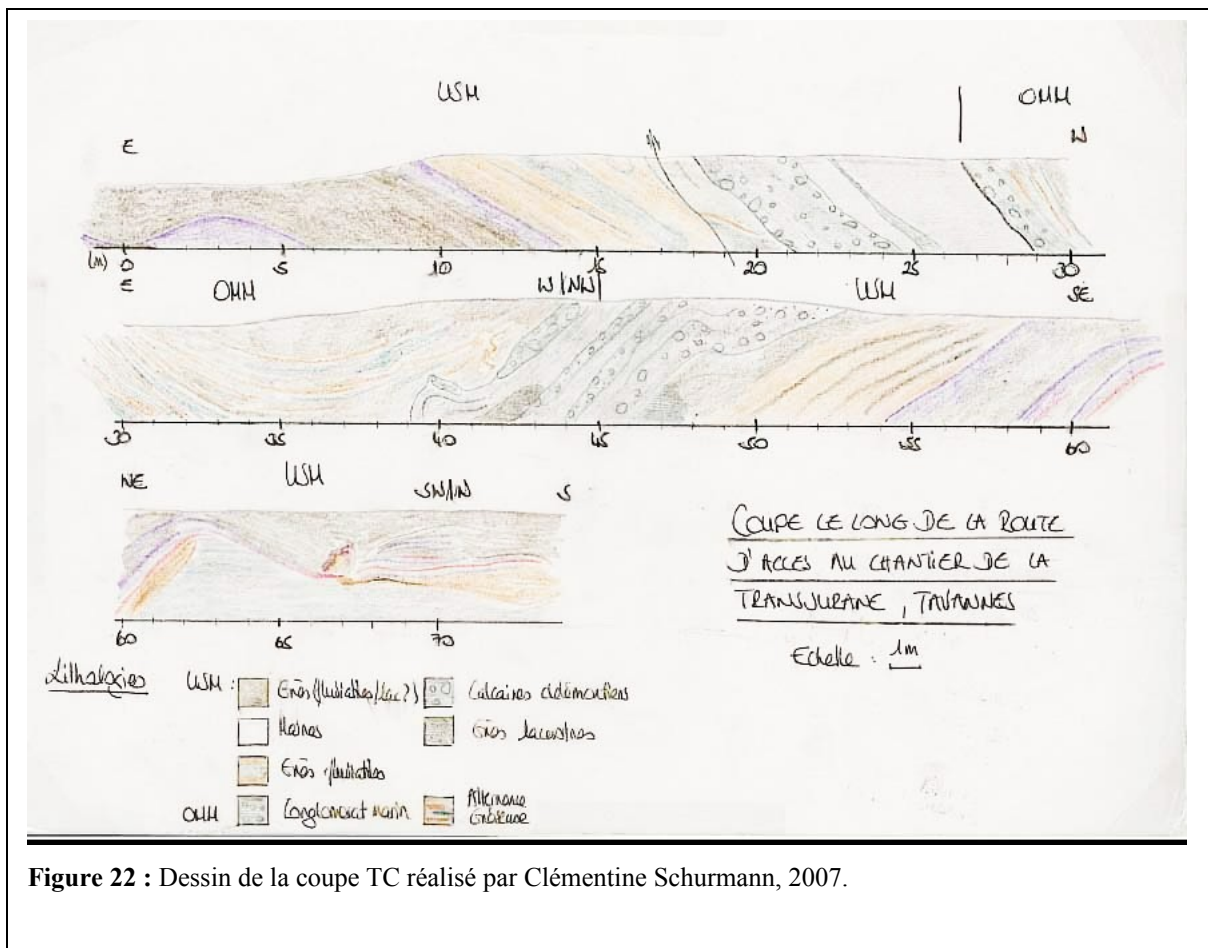 USM
OMM
E
W
(m) 0 5 10 15 20 25 30
E
OMM
W/NW
USM
SE
30 35 40 45 50 55 60
NE
USM
SW/W
S
60 65 70
COUPE LE LONG DE LA ROUTE
D'ACCES AU CHANTIER DE LA
TRANSJURANE, TAVANNES
Echelle : 1m
Lithologies
USM : Grès (fluviatiles/lac?)
Calcaires
Marnes
Grès lacustres
Grès fluviatiles
OMM Conglomérat marin
Alternance
Gréseuse
Figure 22 : Dessin de la coupe TC réalisé par Clémentine Schurmann, 2007.